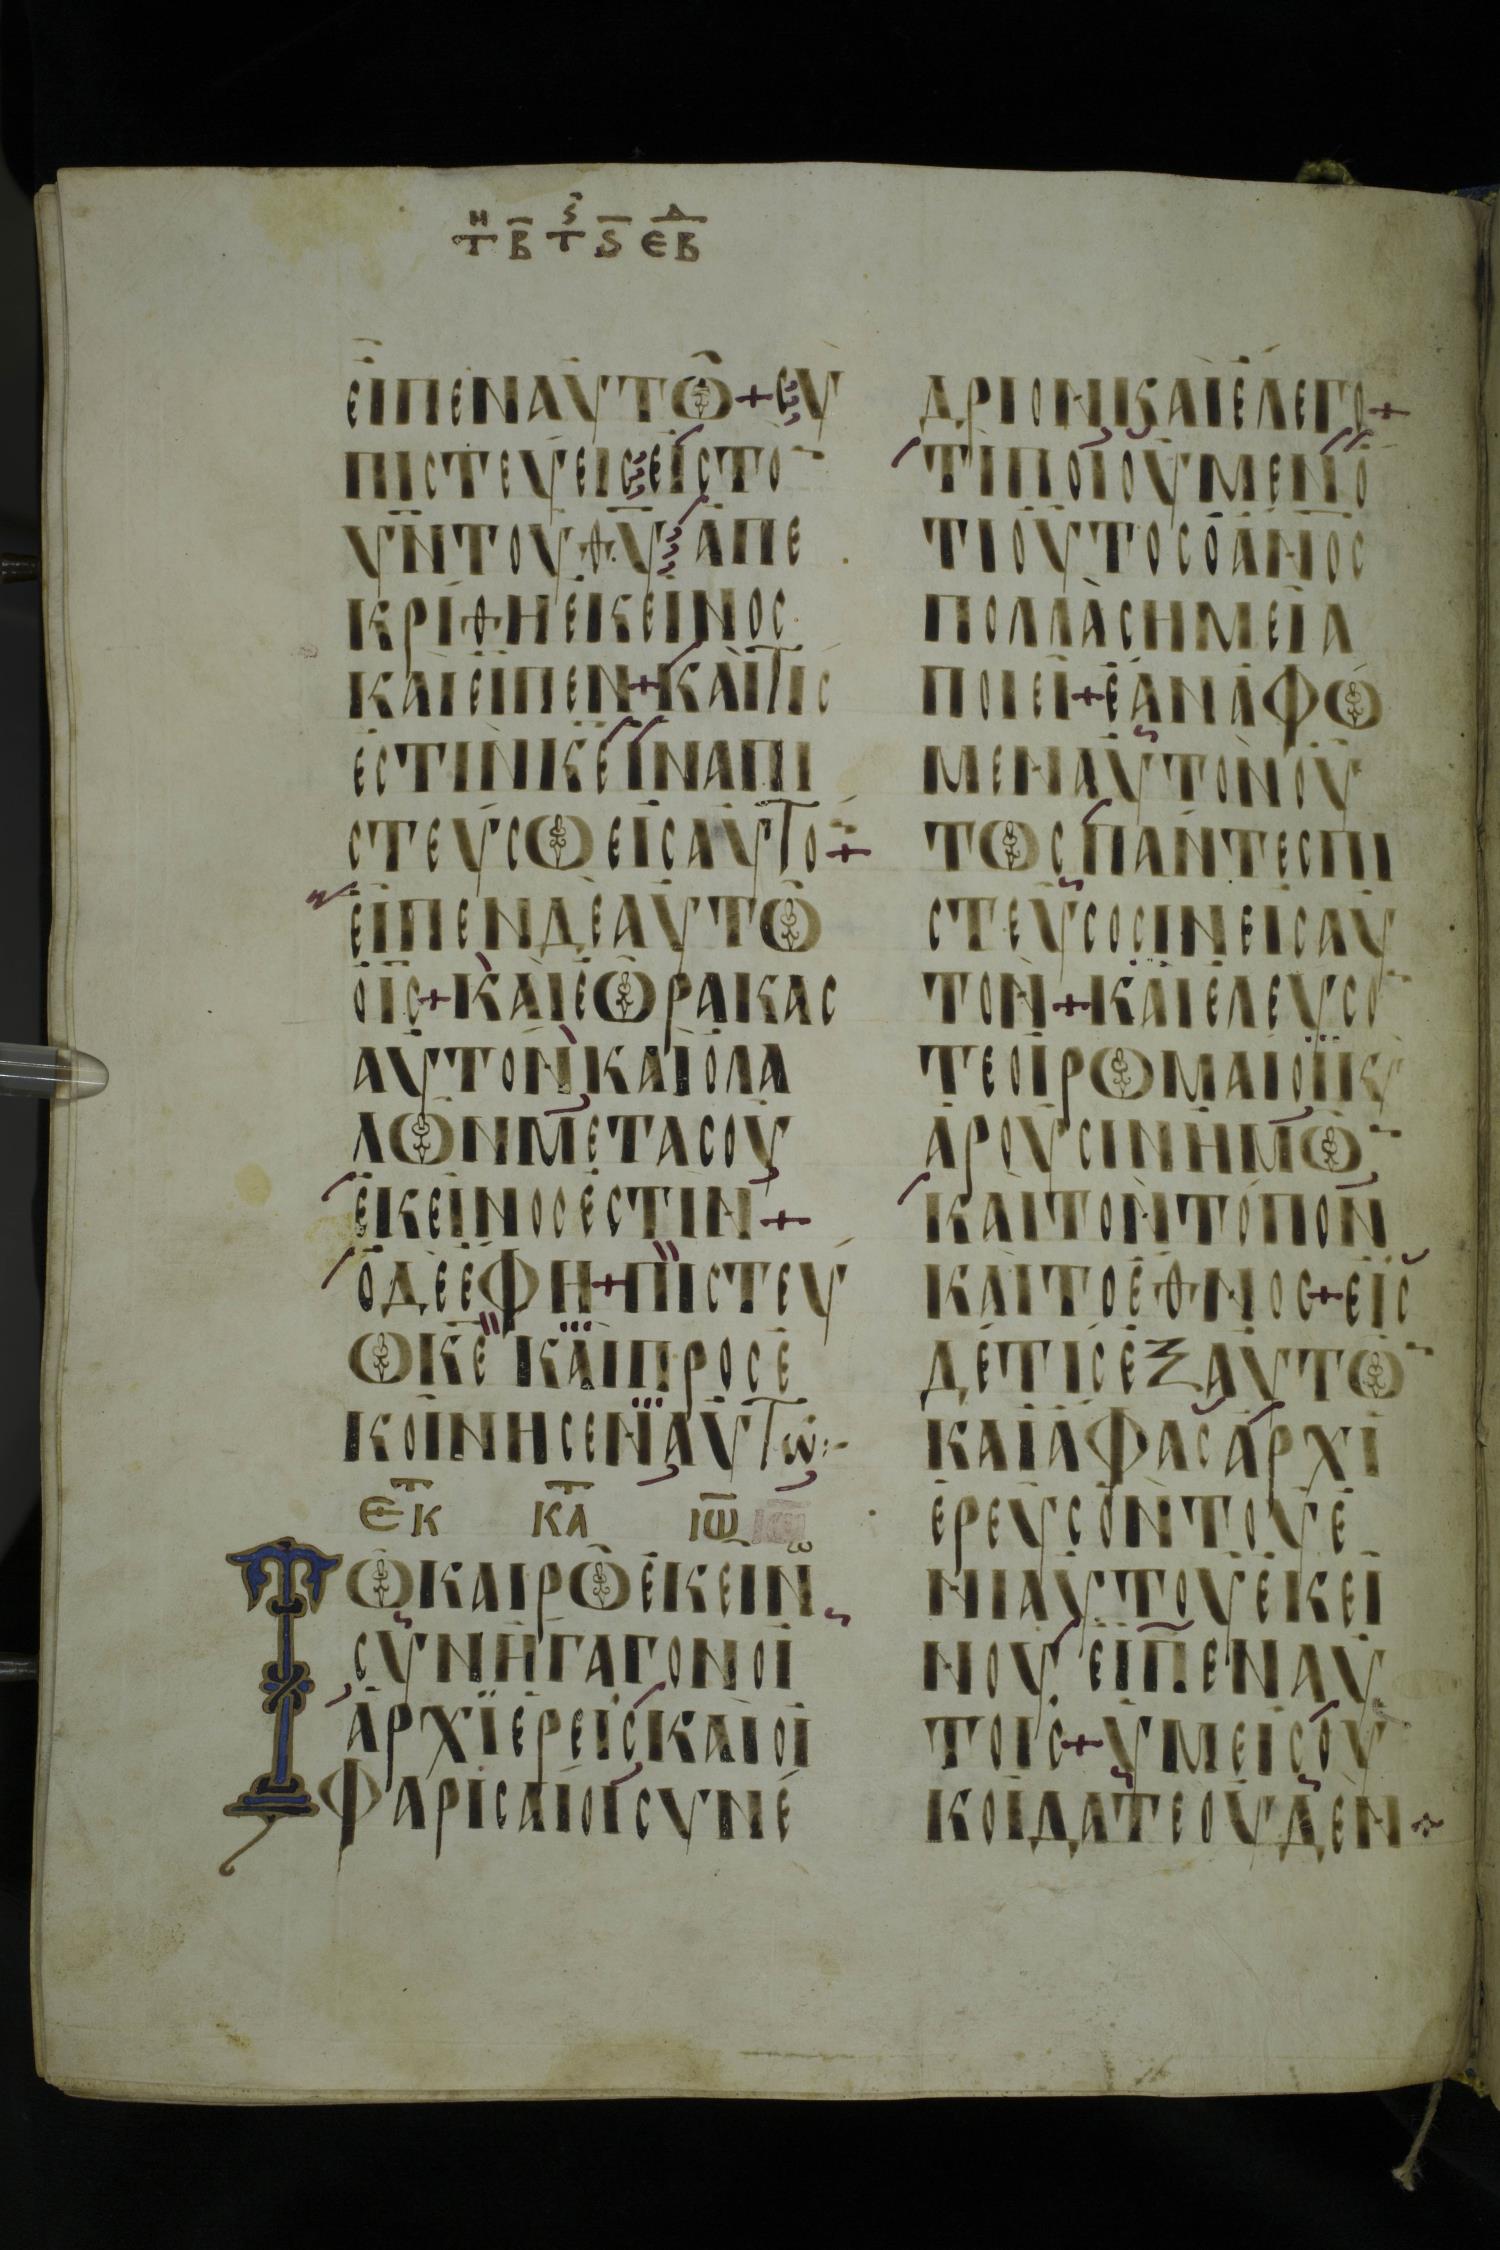 Τ Η Β Τ Ϛ Ϛ ΕΒ Δ
ΕΙΠΕΝΑΥΤΩ+ΣΥ
ΠΙΣΤΕΥΕΙΣΕΙΣΤΟ
ΥΝΤΟΥΘΥ ΑΠΕ
ΚΡΙΘΗΕΚΕΙΝΟΣ
ΚΑΙΕΙΠΕΝ+ΚΑΙΤΙΣ
ΕΣΤΙΝΚΕΙΝΑΠΙ
ΣΤΕΥΣΩΕΙΣΑΥΤΟ+
ΕΙΠΕΝΔΕΑΥΤΩ
ΟΙΣ+ΚΑΙΕΩΡΑΚΑΣ
ΑΥΤΟΝΚΑΙΟΛΑ
ΛΩΝΜΕΤΑΣΟΥ
ΕΚΕΙΝΟΣΕΣΤΙΝ+
ΟΔΕΕΦΗ+ΠΙΣΤΕΥ
ΩΚΕ ΚΑΙΠΡΟΣΕ
ΚΟΙΝΗΣΕΝΑΥΤω:-
ΕΚ ΤΚΑ ΙΩ
ΤΩΚΑΙΡΩΕΚΕΙΝω
ΣΥΝΗΓΑΓΟΝΟΙ
ΑΡΧΙΕΡΕΙΣΚΑΙΟΙ
ΦΑΡΙΣΑΙΟΙΣΥΝΕ
ΔΡΙΟΝΚΑΙΕΛΕΓΟ+
ΤΙΠΟΙΟΥΜΕΝΟ
ΤΙΟΥΤΟΣΟΑΝΟΣ
ΠΟΛΛΑΣΗΜΕΙΑ
ΠΟΙΕΙ+ΕΑΝΑΦΩ
ΜΕΝΑΥΤΟΝΟΥ
ΤΩΣΠΑΝΤΕΣΠΙ
ΣΤΕΥΣΟΣΙΝΕΙΣΑΥ
ΤΟΝ+ΚΑΙΕΛΕΥΣΟ
ΤΕΟΙΡΩΜΑΙΟΙΚ
ΑΡΟΥΣΙΝΗΜΩ
ΚΑΙΤΟΝΤΟΠΟΝ
ΚΑΙΤΟΕΘΝΟΣ+ΕΙΣ
ΔΕΤΙΣΕΞΑΥΤΩ
ΚΑΙΑΦΑΣΑΡΧΙ
ΕΡΕΥΣΟΝΤΟΥΕ
ΝΙΑΥΤΟΥΕΚΕΙ
ΝΟΥ ΕΙΠΕΝΑΥ
ΤΟΙΣ+ΥΜΕΙΣΟΥ
ΚΟΙΔΑΤΕΟΥΔΕΝ